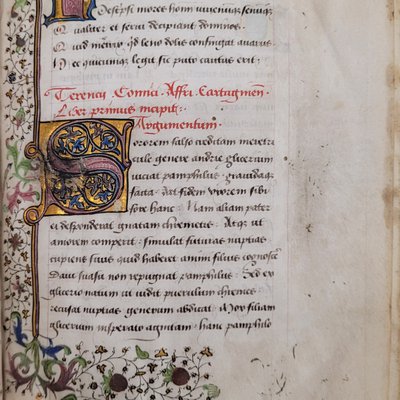 Descpsi mores hoim iuvenuq; senuq;
Qualiter et servi decipiant dominos.
Quid metrix qd leno dolis confingat avarus
Hec quicunq; legit sic puto cautus erit.
Terencii Comici Affri Cartaginen.
Liber primus incipit
Argumentum.
Sororem falso creditam meretri
cule genere andrie glicerium
viciat pamphilus. gravidaq;
facta. dat fidem uxorem sibi
fore hanc. Nam aliam pater
ei desponderat gnatam chremetis. Atq; ut
amorem comperit. simulat futuras nuptias
cupiens suus quid haberet animi filius cognosce
Davi suasu non repugnat pamphilus. Sed ex
glicerio natum ut vidit puerulum chremes.
recusat nuptias generum abdicat. Mox filiam
glicerium insperato agnitam. hanc pamphilo